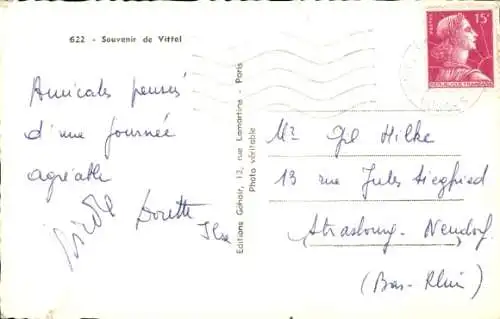 622 - Souvenir de Vittel
Amicales pensées
d'une journée
agréable
Dorette
Ilse
Editions Géhair, 12, rue Lamartine - Paris
Photo véritable
15F
POSTES
REPUBLIQUE FRANÇAISE
Mr Hilke
13 rue Jules Siegfried
Strasbourg. Neudorf
(Bas-Rhin)